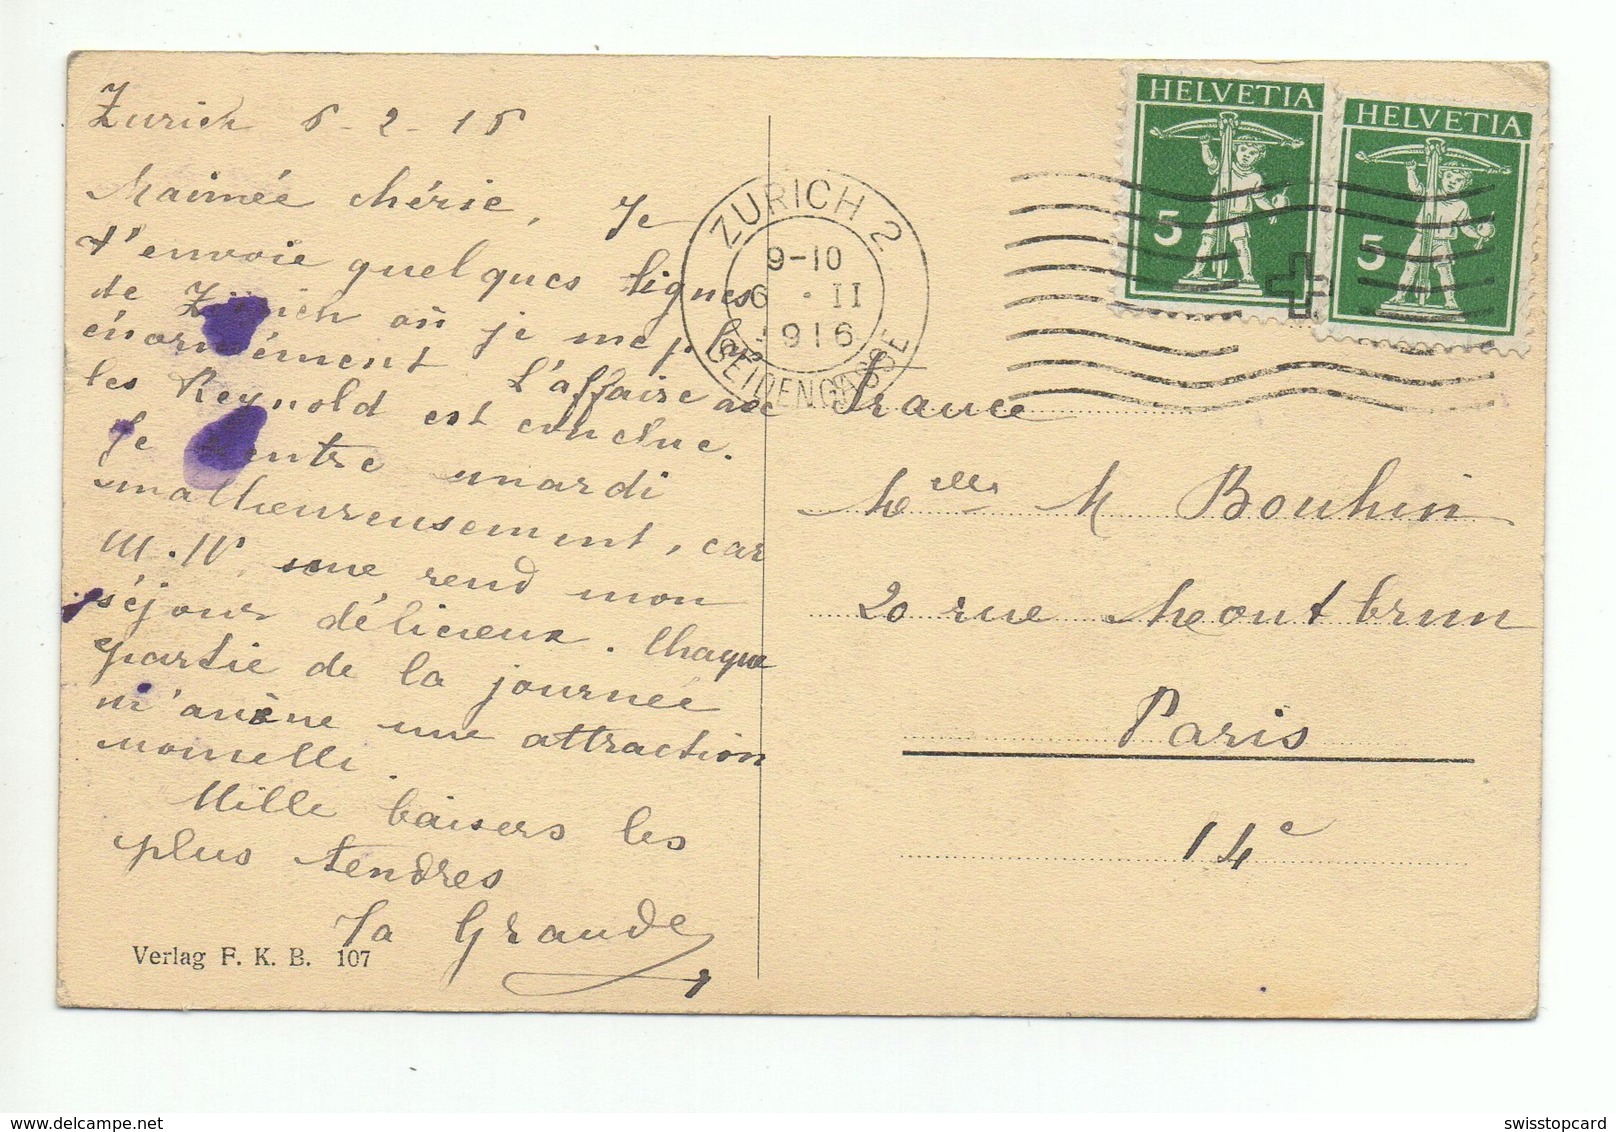 Zurich 6-2-16
Maimée chérie, Je
t'envoie quelques lignes
de Zürich où je me plais
énormément. L'affaire avec
les Reynold est conclue.
Je rentre mardi
malheureusement, car
M. W. me rend mon
séjour délicieux. Chaque
partie de la journée
m'amène une attraction
nouvelle.
Mille baisers les
plus tendres
Ta Grande
Verlag F. K. B. 107
ZURICH 2
9-10
6 · II
1916
SEIDENGASSE
HELVETIA
5
HELVETIA
5
France
Melle M Bouhin
20 rue Montbrun
Paris
14e
delcampe.net
swisstopcard